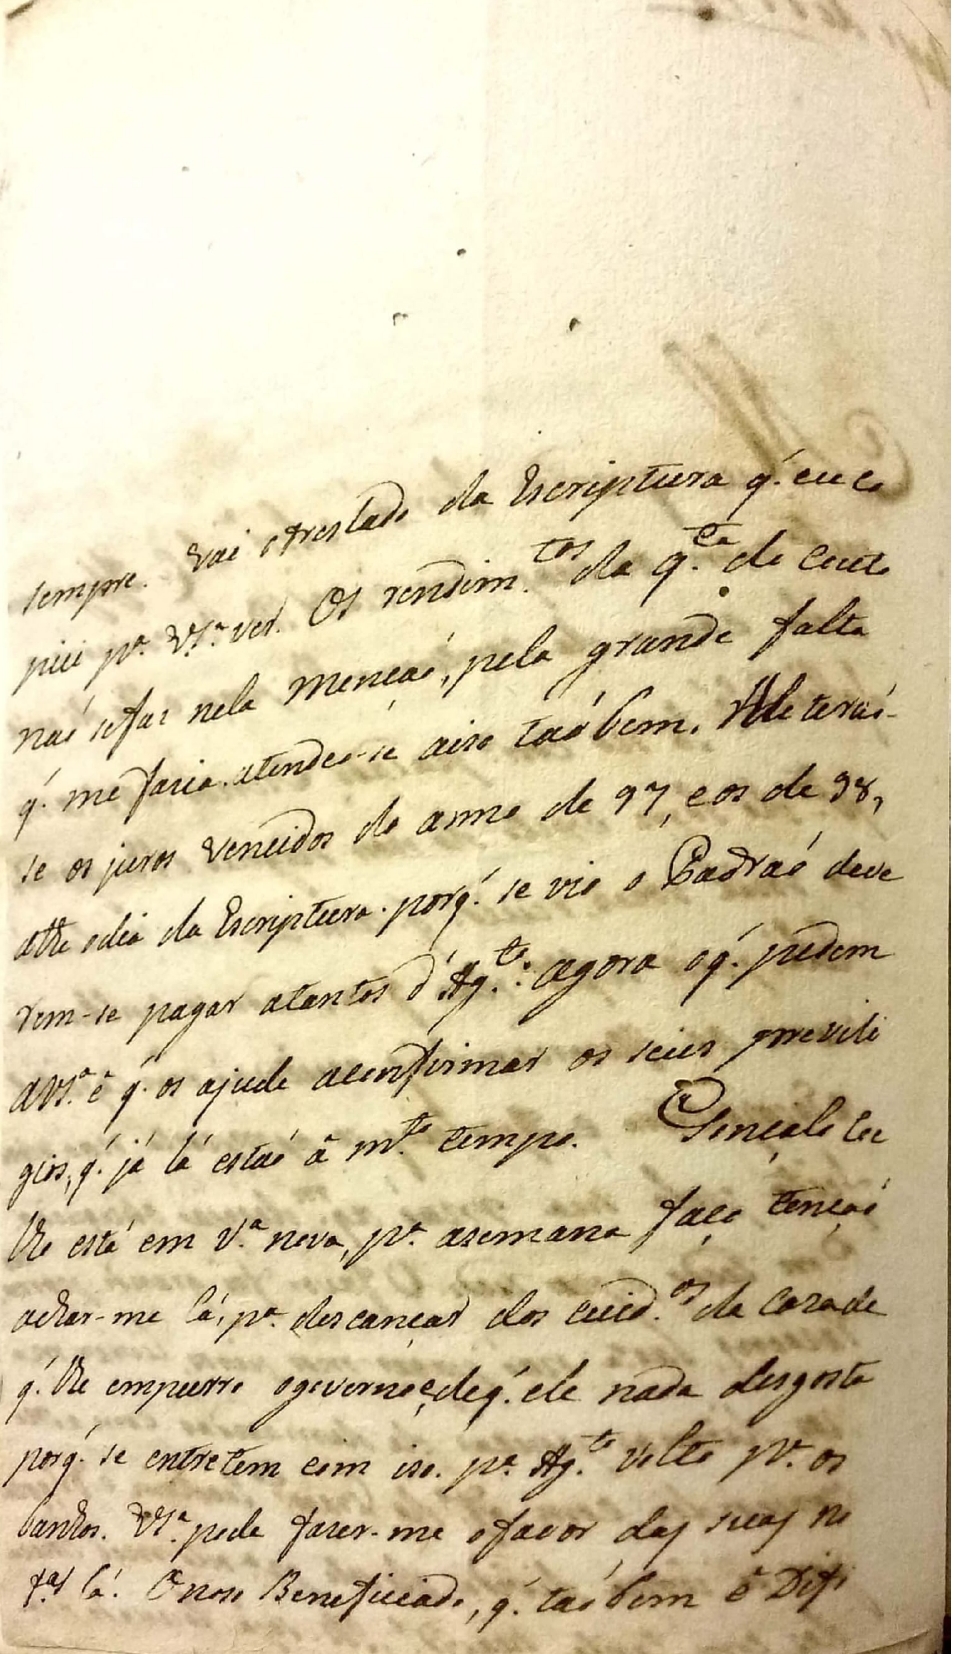 sempre. Vai o treslado da Escriptura q́. eu co
piei pª. VSª. ver. Os rendim.tos da q.ta de Couto
naó se faz nela mençaó, pela grande falta
q́. me faria. atendeo-se aiso taó bem.
se os juros vencidos do anno de 97, e os de 98,
athe odia da Escriptura. porq́. se vio o Padraó deve
rem-se pagar atantos d'Ag.to: agora oq́. pedem
aVSª. é q́. os ajude aconfirmar os seus previle
gios, q́. já lá estaó ã m.to tempo. Gonçalo
lhe está em Vª. nova, pª. asemana faço tençaó
achar-me lá, pª. descançar dos cuid.os da Caza de
q́. lhe empurro ogoverno, e deq́. ele nada desgosta
porq́. se entretem com iso. pª. Ag.to volto pª. os
banhos. VSª. pode fazer-me ofavor das suas no
t.as lá. O noso Beneficiado, q́. taó bem é